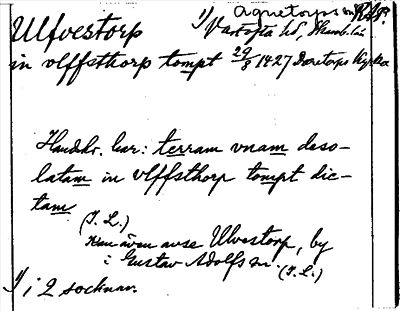 Ulfvestorp
1) Agnetorps sn RAP.
Vartofta hd, Skarab. län
in vlffsthorp tompt 29/8 1427 Daretorps kyrka
Handskr. har: terram vnam deso-
latam in vlffsthorp tompt dic-
tam
(I. L.)
Kan även avse Ulvestorp, by
i Gustav Adolfs sn. (I. L.)
1) i 2 socknar.